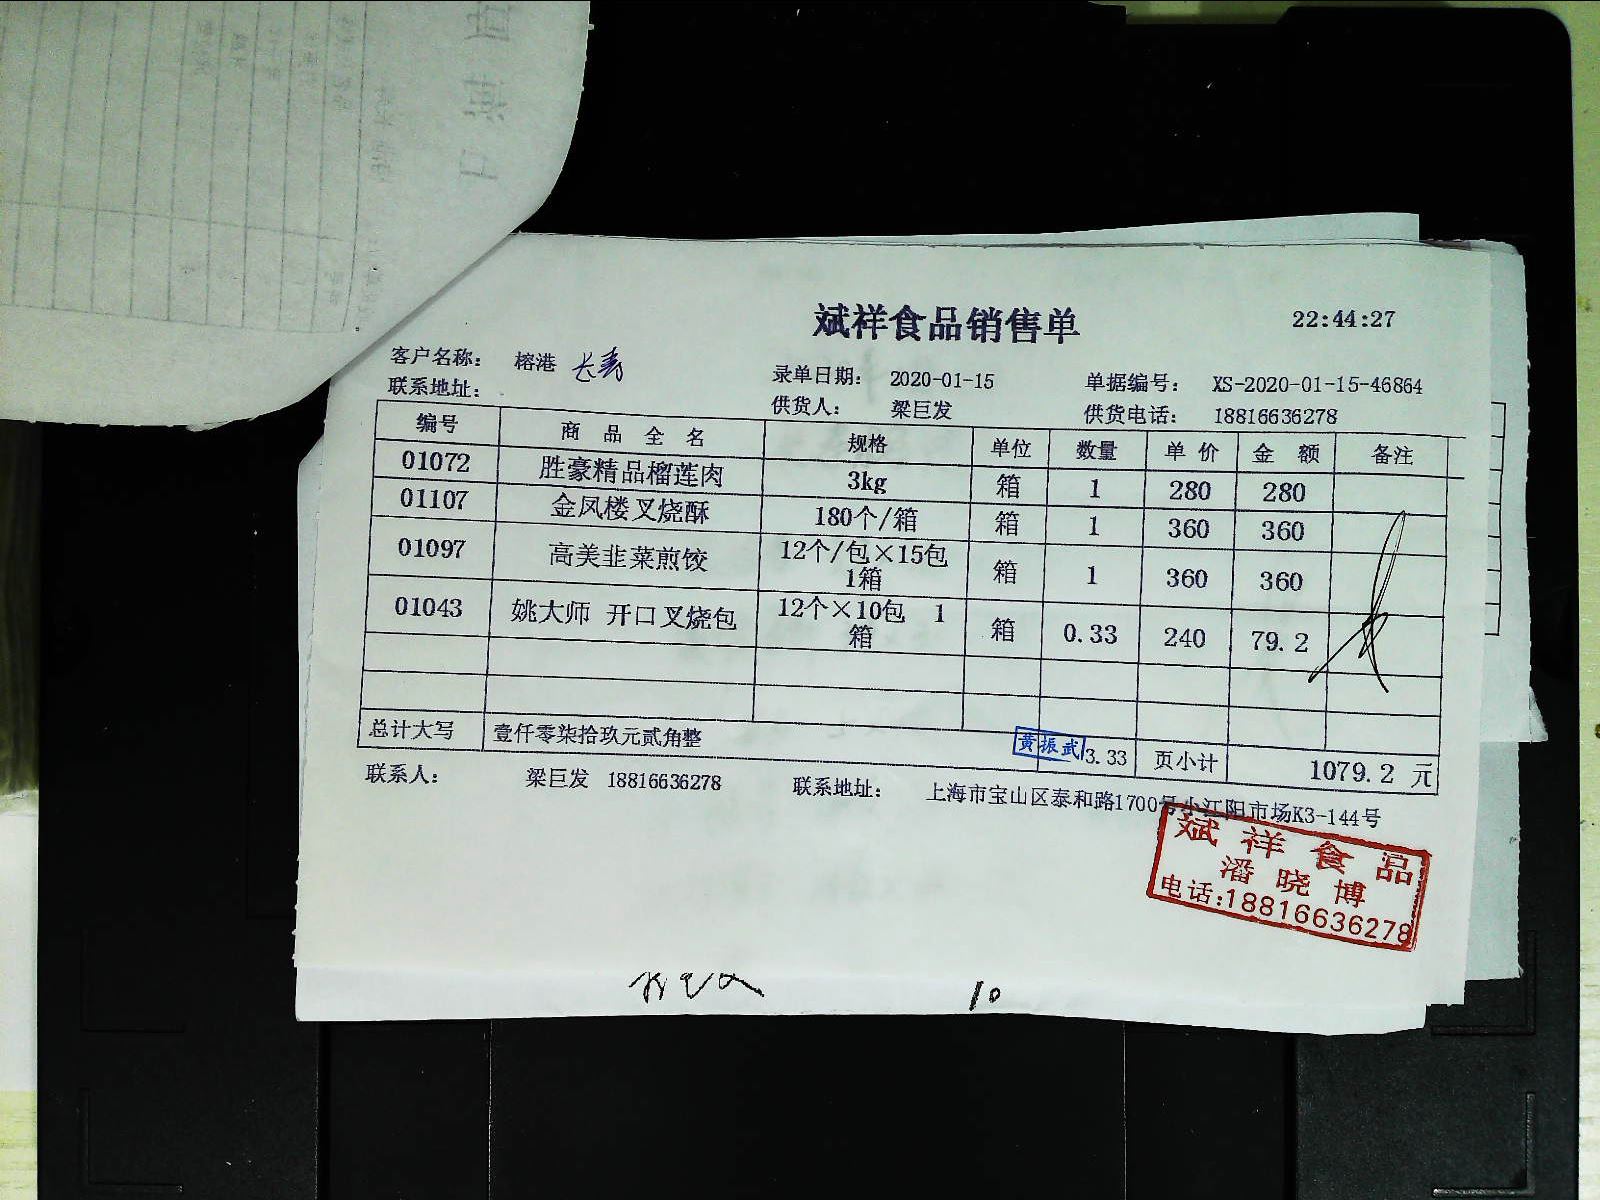 斌祥食品销售单 22:44:27
客户名称： 榕港 长寿 录单日期： 2020-01-15 单据编号： XS-2020-01-15-46864
联系地址： 供货人： 梁巨发 供货电话： 18816636278
编号 商品全名 规格 单位 数量 单价 金额 备注
01072 胜豪精品榴莲肉 3kg 箱 1 280 280
01107 金凤楼叉烧酥 180个/箱 箱 1 360 360
01097 高美韭菜煎饺 12个/包×15包 1箱 箱 1 360 360
01043 姚大师 开口叉烧包 12个×10包 1箱 箱 0.33 240 79.2
总计大写 壹仟零柒拾玖元贰角整 黄振武 3.33 页小计 1079.2 元
联系人： 梁巨发 18816636278 联系地址： 上海市宝山区泰和路1700号小江阳市场K3-144号
斌祥食品
潘晓博
电话:18816636278
10